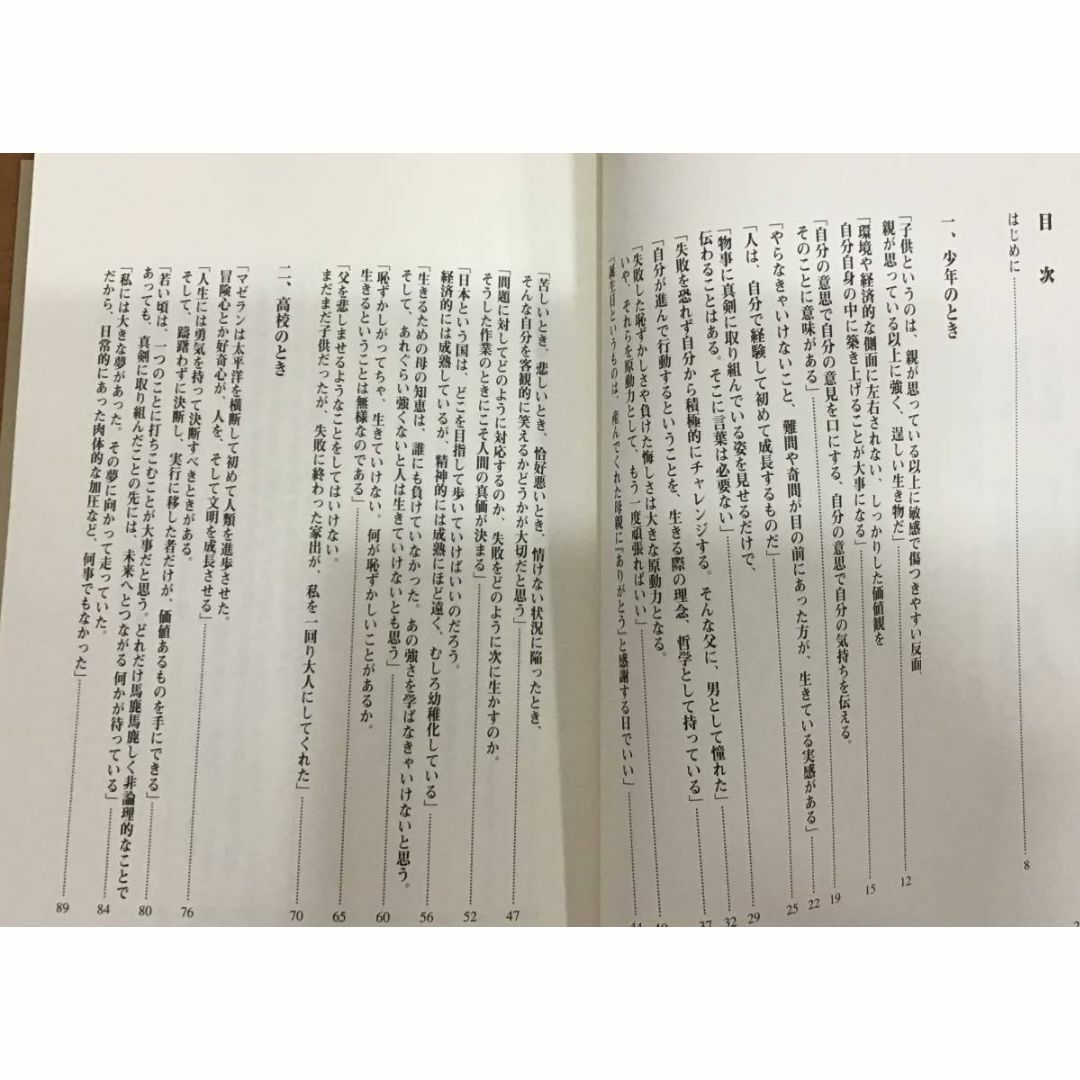 目次
はじめに 8
一、少年のとき
「子供というのは、親が思っている以上に敏感で傷つきやすい反面、
親が思っている以上に強く、逞しい生き物だ」 12
「環境や経済的な側面に左右されない、しっかりした価値観を
自分自身の中に築き上げることが大事になる」 15
「自分の意思で自分の意見を口にする、自分の意思で自分の気持ちを伝える。
そのことに意味がある」 19
「やらなきゃいけないこと、難問や奇問が目の前にあった方が、生きている実感がある」 22
「人は、自分で経験して初めて成長するものだ」 25
「物事に真剣に取り組んでいる姿を見せるだけで、
伝わることはある。そこに言葉は必要ない」 29
「失敗を恐れず自分から積極的にチャレンジする。そんな父に、男として憧れた」 32
「自分が進んで行動するということを、生きる際の理念、哲学として持っている」 37
「失敗した恥ずかしさや負けた悔しさは大きな原動力となる。
いや、それらを原動力として、もう一度頑張ればいい」
「誕生日というものは、産んでくれた母親に『ありがとう』と感謝する日でいい」 44
「苦しいとき、悲しいとき、恰好悪いとき、情けない状況に陥ったとき、
そんな自分を客観的に笑えるかどうかが大切だと思う」 47
「問題に対してどのように対応するのか、失敗をどのように次に生かすのか。
そうした作業のときにこそ人間の真価が決まる」 52
「日本という国は、どこを目指して歩いていけばいいのだろう。
経済的には成熟しているが、精神的には成熟にほど遠く、むしろ幼稚化している」 56
「生きるための母の知恵は、誰にも負けていなかった。あの強さを学ばなきゃいけないと思う。
そして、あれぐらい強くないと人は生きていけないとも思う」 60
「恥ずかしがってちゃ、生きていけない。何が恥ずかしいことがあるか。
生きるということは無様なのである」 65
「父を悲しませるようなことをしてはいけない。
まだまだ子供だったが、失敗に終わった家出が、私を一回り大人にしてくれた」 70
二、高校のとき
「マゼランは太平洋を横断して初めて人類を進歩させた。
冒険心とか好奇心が、人を、そして文明を成長させる」 76
「人生には勇気を持って決断すべきときがある。
そして、躊躇わずに決断し、実行に移した者だけが、価値あるものを手にできる」 80
「若い頃は、一つのことに打ちこむことが大事だと思う。どれだけ馬鹿馬鹿しく非論理的なことで
あっても、真剣に取り組んだことの先には、未来へとつながる何かが待っている」 84
「私には大きな夢があった。その夢に向かって走っていた。
だから、日常的にあった肉体的な加圧など、何事でもなかった」 89